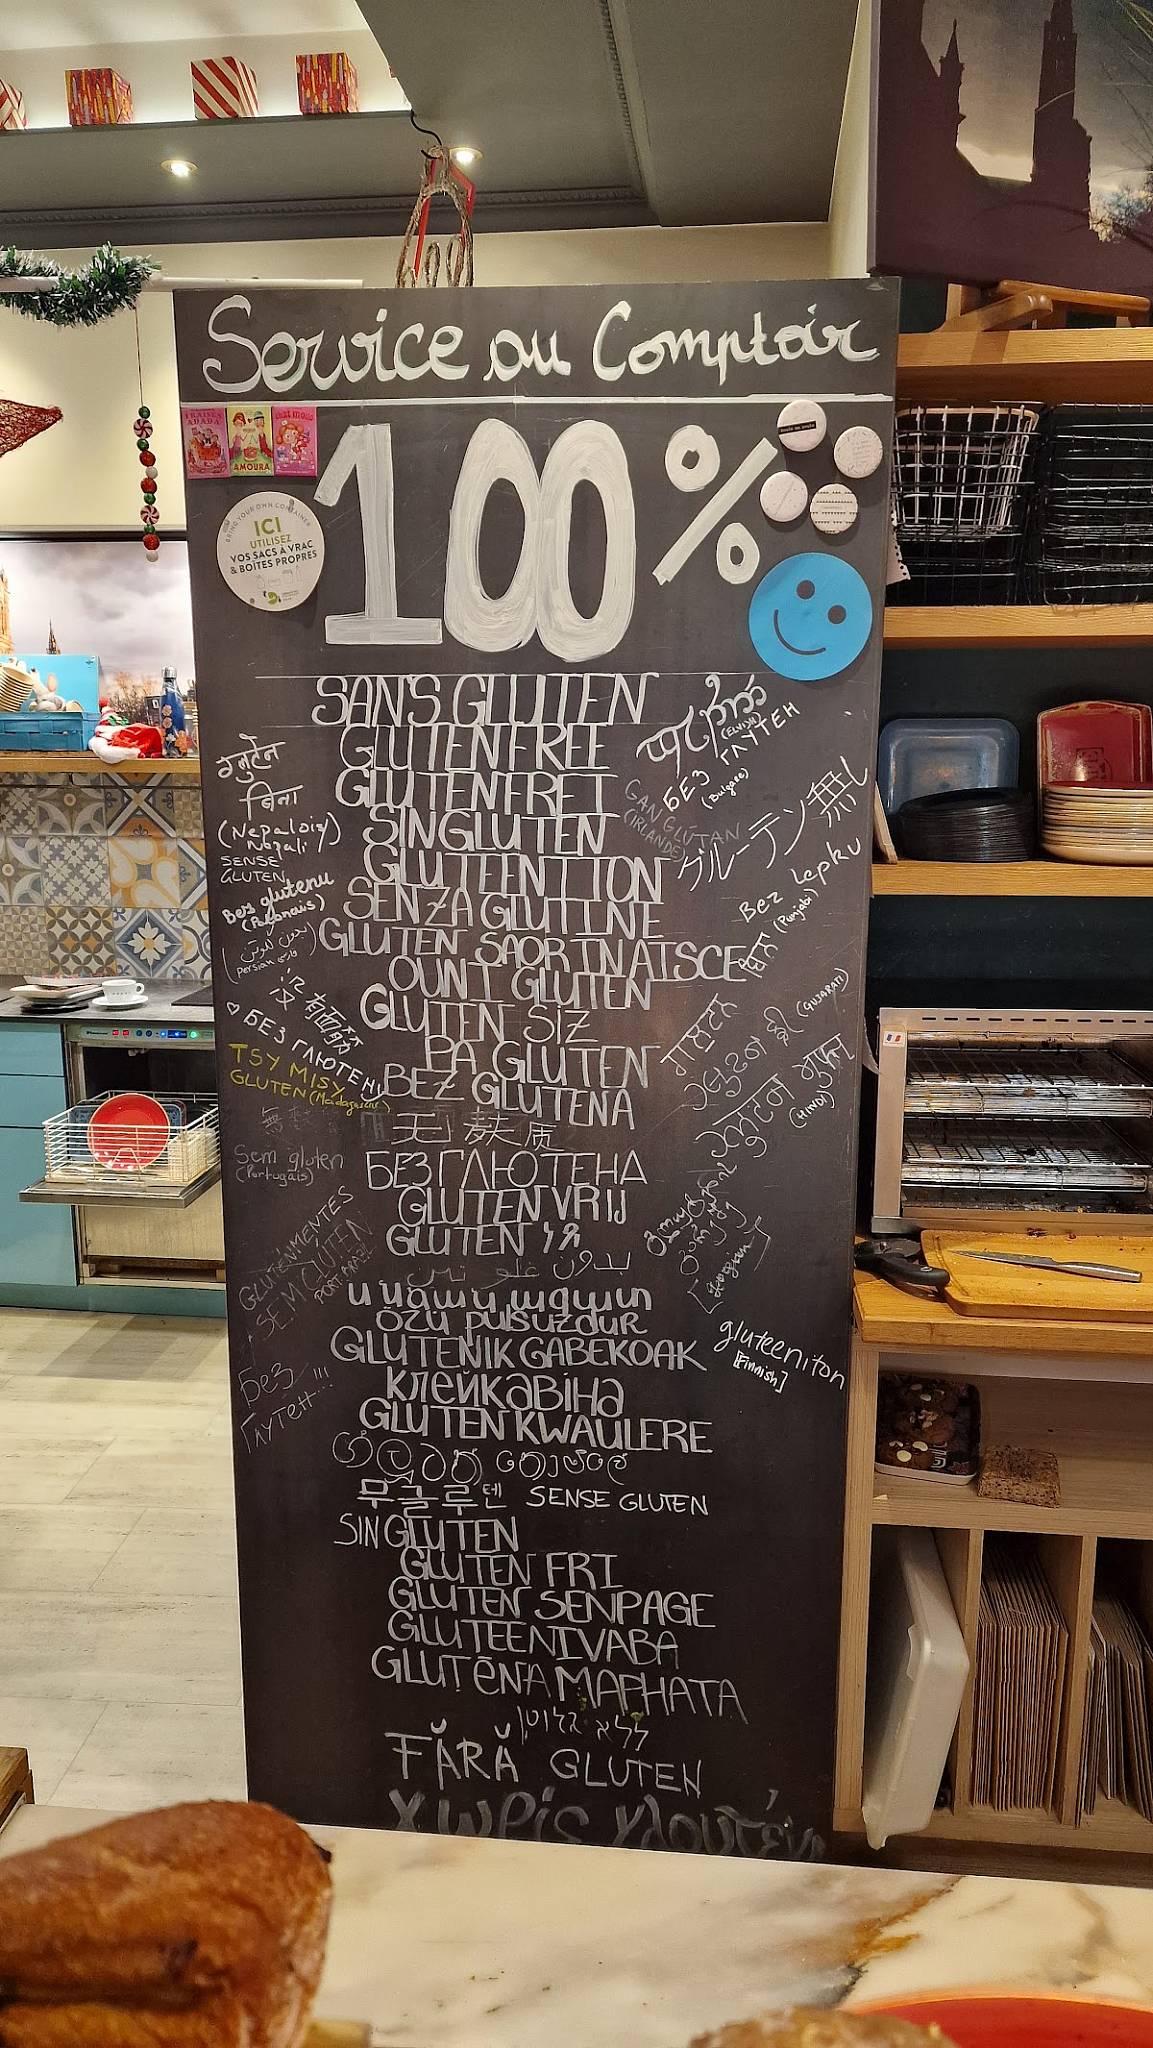 Service au Comptoir
100%
FRAISES
ADADA
AMOURA
BRING YOUR OWN CONTAINER
ICI
UTILISEZ
VOS SACS À VRAC
& BOÎTES PROPRES
SANS GLUTEN
GLUTENFREE
GLUTENFREI
SINGLUTEN
GLUTEENITON
SENZA GLUTINE
GLUTEN SAOR IN AISCE
OUNI GLUTEN
GLUTEN SIZ
PA GLUTEN
BEZ GLUTENA
无麸质
БЕЗ ГЛЮТЕНА
GLUTEN VRIJ
GLUTEN
بدون غلوتين
GLUTENIK GABEKOAK
клейкавіна
GLUTEN KWAULERE
무글루텐 SENSE GLUTEN
SIN GLUTEN
GLUTEN FRI
GLUTEN SENPAGE
GLUTEENIVABA
GLUTĒNA MAPHATA
ללא גלוטן
FĂRĂ GLUTEN
χωρίς γλουτένη
ग्लुटेन
बिना
(Nepalois)
Nepali
SENSE
GLUTEN
Bez glutenu
(Polonais)
(persian فارسی)
没有面筋
БЕЗ ГЛЮТЕНУ
TSY MISY
GLUTEN (Madagascar)
Sem gluten
(Portugais)
GLUTÉNMENTES
SEM GLUTEN
PORT. BRAZIL
Без
Глутен !!!
(ELVISH)
БЕЗ ГЛУТЕН
(Bulgare)
GAN GLÚTAN
(IRLANDE)
グルーテン無し
Bez Lepku
(Punjabi)
(GUJARATI)
(HINDI)
[Georgian]
gluteeniton
[Finnish]